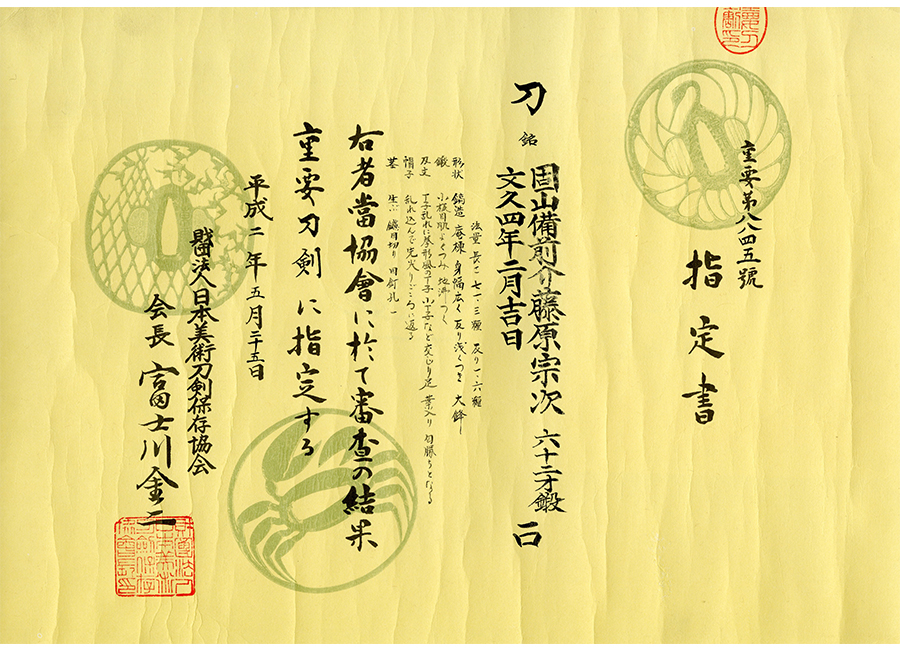 重要第八八四五號
指定書
刀 銘 固山備前介藤原宗次 六十二才鍛 一口
文久四年二月吉日
法量 長二七一・三糎 反り一・六糎
形状 鎬造 庵棟 身幅広く 反り浅くつき 大鋒
鍛 小板目肌よくつみ 地沸つく
刃文 丁子乱れに拳形風の丁子 小丁子など交じり 足 葉入り 匂勝ちとなる
帽子 乱れ込んで先尖りごころに返る
茎 生ぶ 鑢目切り 目釘孔一
右者當協會に於て審査の結果
重要刀剣に指定する
平成二年五月二十五日
財団法人日本美術刀剣保存協会
会長 富士川金二